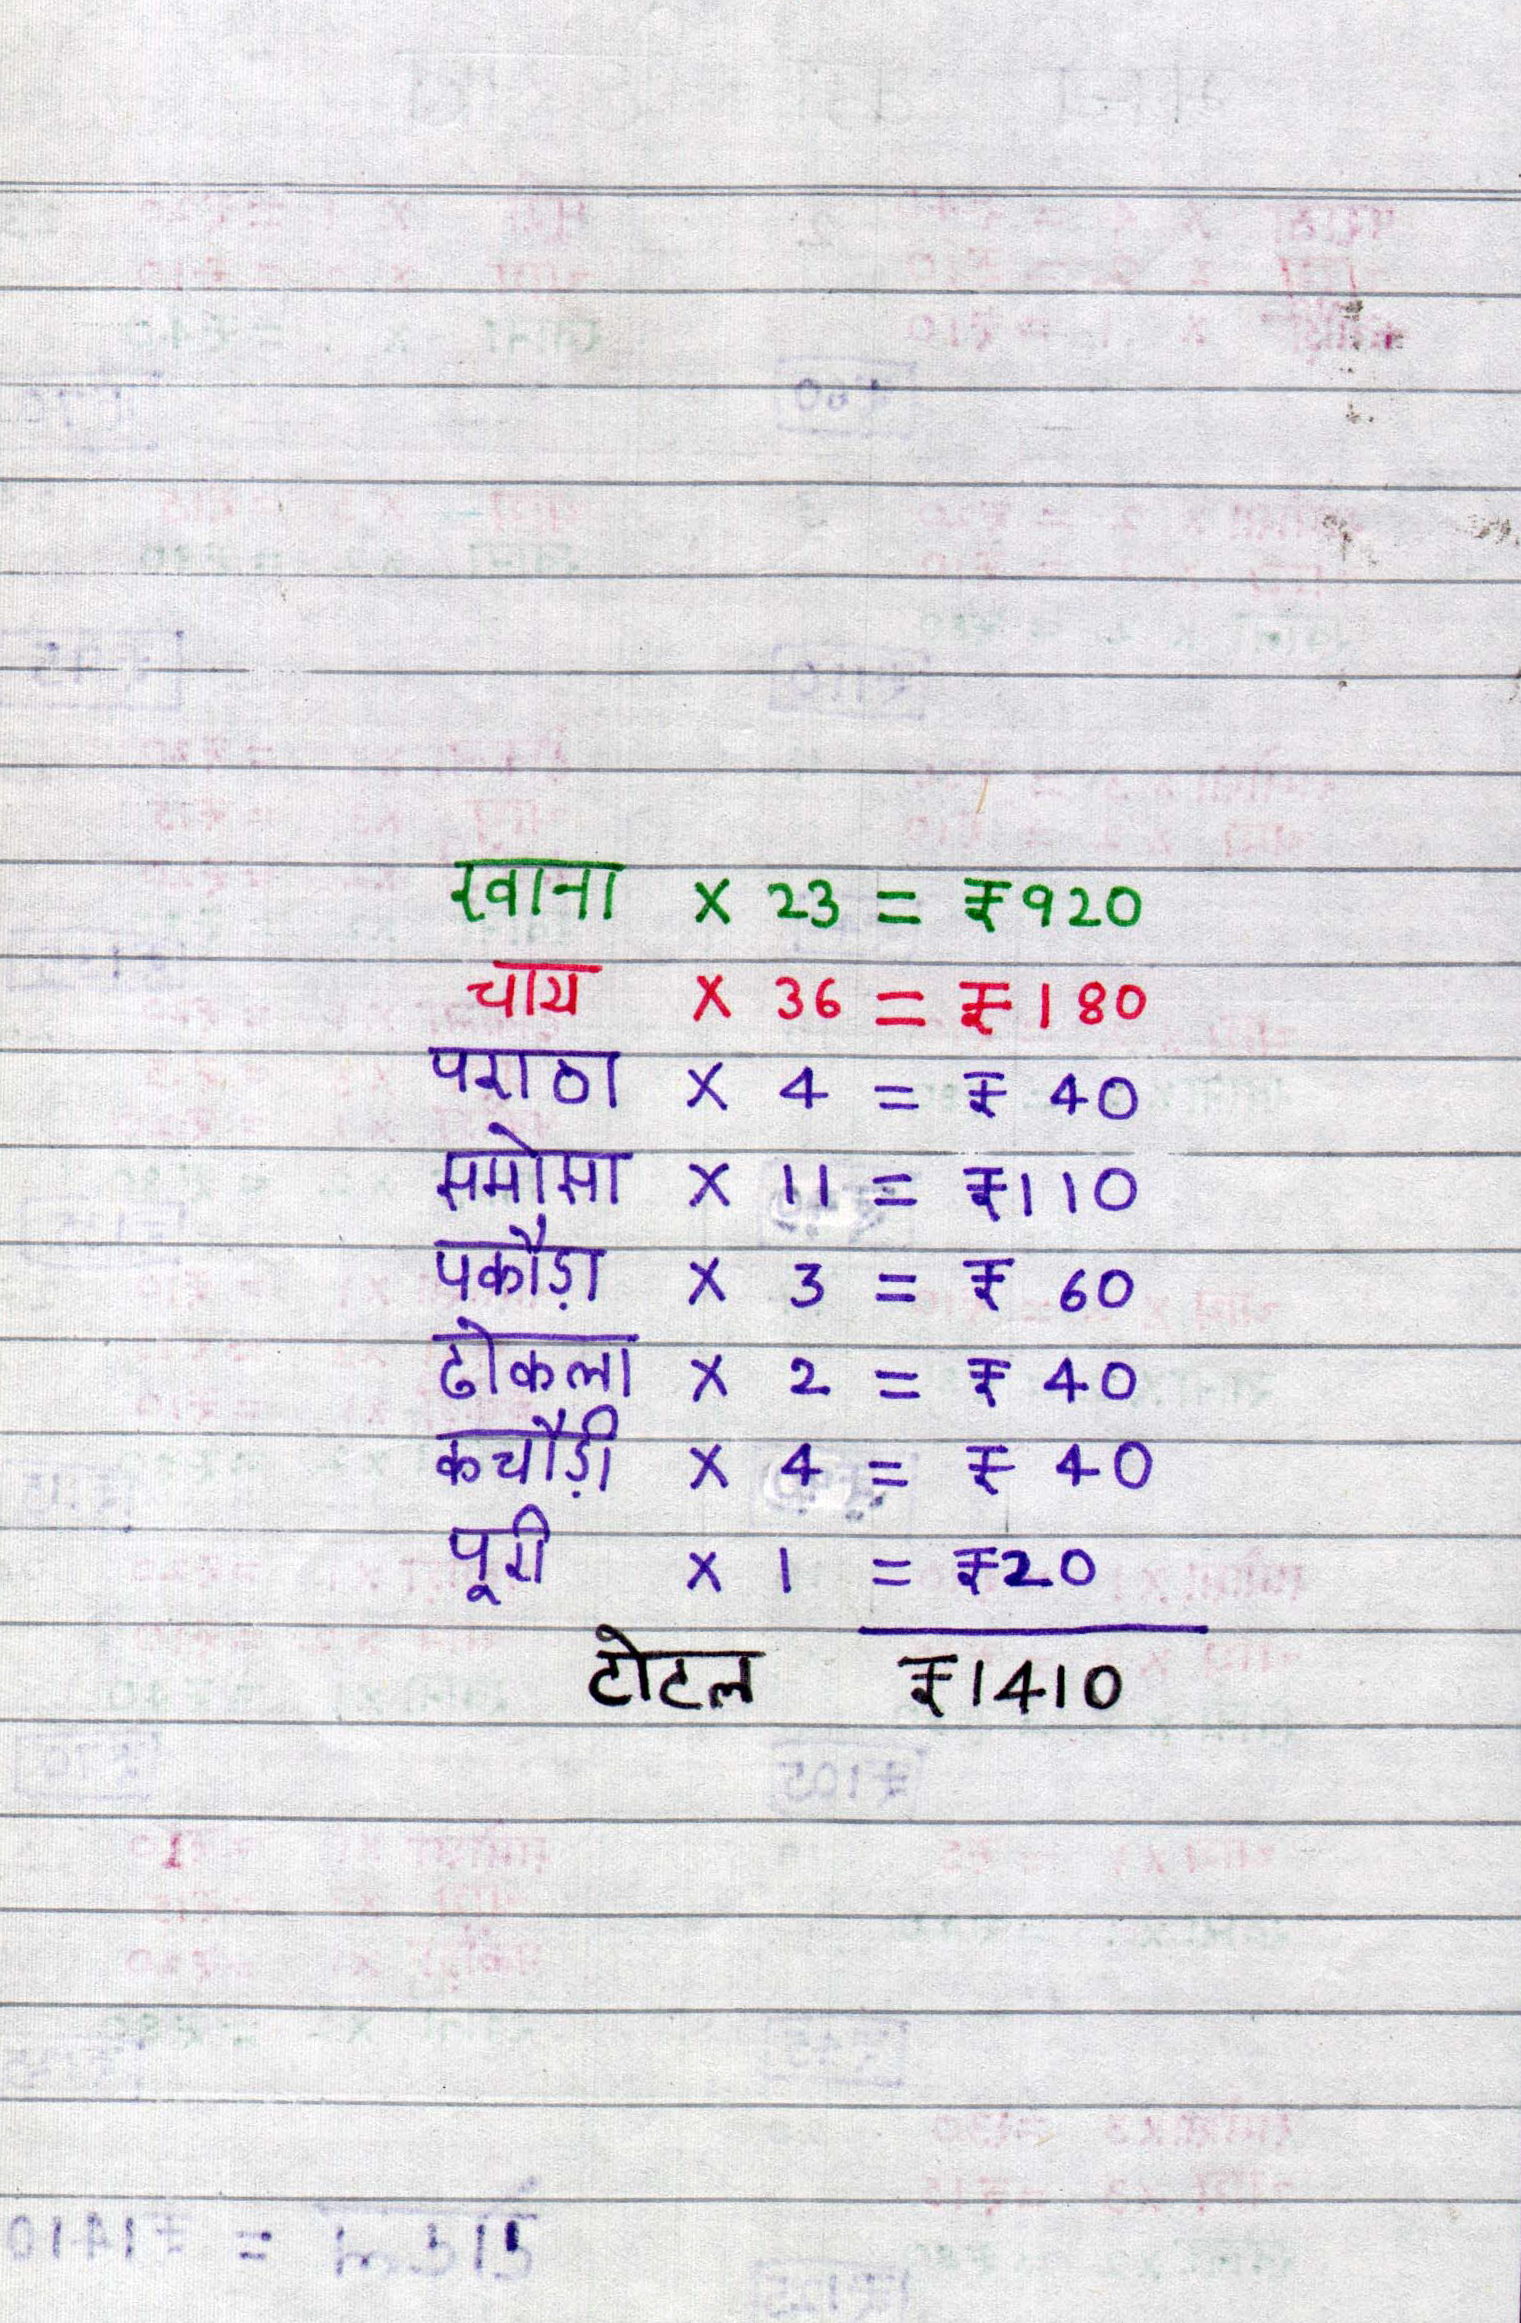 खाना × 23 = ₹920
चाय × 36 = ₹180
पराठा × 4 = ₹ 40
समोसा × 11 = ₹110
पकौड़ा × 3 = ₹ 60
ढोकला × 2 = ₹ 40
कचौड़ी × 4 = ₹ 40
पूरी × 1 = ₹20
टोटल ₹1410